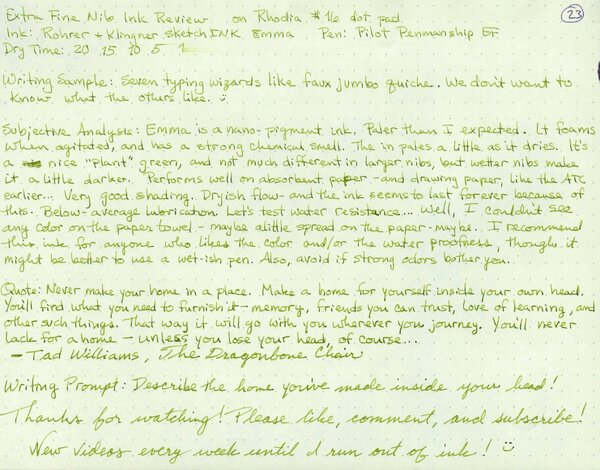 Extra Fine Nib Ink Review on Rhodia #16 dot pad. 23
Ink: Rohrer + Klingner SketchINK Emma Pen: Pilot Penmanship EF
Dry Time: 20 15 10 5 1
Writing Sample: Seven typing wizards like faux jumbo quiche. We don't want to
know what the others like. :)
Subjective Analysis: Emma is a nano-pigment ink. Paler than I expected. It foams
when agitated, and has a strong chemical smell. The in pales a little as it dries. It's
a nice "plant" green, and not much different in larger nibs, but wetter nibs make
it a little darker. Performs well on absorbent paper - and drawing paper, like the ATC
earlier... Very good shading. Dryish flow - and the ink seems to last forever because of
this. Below-average lubrication. Let's test water resistance... Well, I couldn't see
any color on the paper towel - maybe a little spread on the paper - maybe. I recommend
this ink for anyone who likes the color and/or the water proofness, though it
might be better to use a wet-ish pen. Also, avoid if strong odors bother you.
Quote: Never make your home in a place. Make a home for yourself inside your own head.
You'll find what you need to furnish it - memory, friends you can trust, love of learning, and
other such things. That way it will go with you wherever you journey. You'll never
lack for a home - unless you lose your head, of course...
- Tad Williams, The Dragonbone Chair
Writing Prompt: Describe the home you've made inside your head!
Thanks for watching! Please like, comment, and subscribe!
New videos every week until I run out of ink! :)